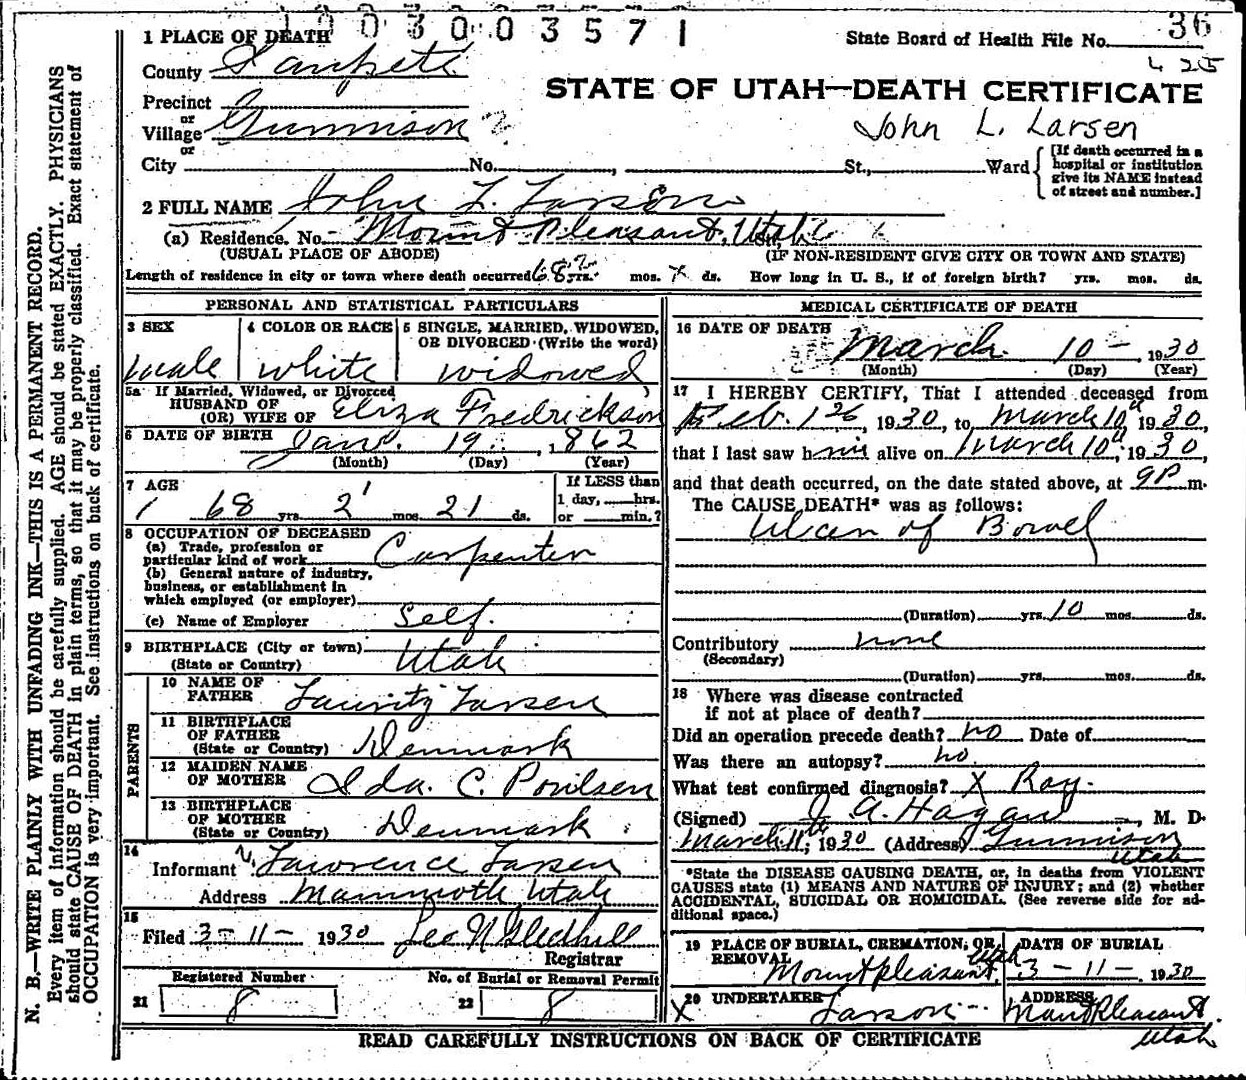 1003003571
1 PLACE OF DEATH
State Board of Health File No. 36
425
County Sanpete
STATE OF UTAH—DEATH CERTIFICATE
Precinct
or
Village Gunnison
or
John L. Larsen
City No. , St., Ward
[If death occurred in a
hospital or institution
give its NAME instead
of street and number.]
2 FULL NAME John L. Larsen
(a) Residence. No. Mount Pleasant, Utah
(USUAL PLACE OF ABODE) (IF NON-RESIDENT GIVE CITY OR TOWN AND STATE)
Length of residence in city or town where death occurred 68 yrs. mos. ds. How long in U. S., if of foreign birth? yrs. mos. ds.
PERSONAL AND STATISTICAL PARTICULARS
3 SEX
male
4 COLOR OR RACE
white
5 SINGLE, MARRIED, WIDOWED,
OR DIVORCED (Write the word)
widowed
5a If Married, Widowed, or Divorced
HUSBAND OF
(OR) WIFE OF Eliza Fredrickson
6 DATE OF BIRTH Jan. 19, 1862
(Month) (Day) (Year)
7 AGE
68 yrs 2 mos. 21 ds.
If LESS than
1 day, hrs.
or min.?
8 OCCUPATION OF DECEASED
(a) Trade, profession or
particular kind of work Carpenter
(b) General nature of industry,
business, or establishment in
which employed (or employer)
(c) Name of Employer Self.
9 BIRTHPLACE (City or town)
(State or Country) Utah
PARENTS
10 NAME OF
FATHER Lauritz Larsen
11 BIRTHPLACE
OF FATHER
(State or Country) Denmark
12 MAIDEN NAME
OF MOTHER Ida. C. Poulsen
13 BIRTHPLACE
OF MOTHER
(State or Country) Denmark
14
Informant Lawrence Larsen
Address Mammoth Utah
15
Filed 3-11- 1930 Leo N Gledhill
Registrar
Registered Number No. of Burial or Removal Permit
21 8 22 8
MEDICAL CERTIFICATE OF DEATH
16 DATE OF DEATH
March 10- , 1930
(Month) (Day) (Year)
17 I HEREBY CERTIFY, That I attended deceased from
Feb. 1st, 1930, to March 10, 1930,
that I last saw him alive on March 10, 1930,
and that death occurred, on the date stated above, at 9P m.
The CAUSE DEATH* was as follows:
Ulcer of Bowel
(Duration) yrs. 10 mos. ds.
Contributory none
(Secondary)
(Duration) yrs. mos. ds.
18 Where was disease contracted
if not at place of death?
Did an operation precede death? no Date of
Was there an autopsy? no.
What test confirmed diagnosis? X Ray.
(Signed) J A. Hagan , M. D.
March 11th, 1930 (Address) Gunnison
Utah
*State the DISEASE CAUSING DEATH, or, in deaths from VIOLENT
CAUSES state (1) MEANS AND NATURE OF INJURY; and (2) whether
ACCIDENTAL, SUICIDAL OR HOMICIDAL. (See reverse side for ad-
ditional space.)
19 PLACE OF BURIAL, CREMATION, OR
REMOVAL
Mount pleasant, Utah
DATE OF BURIAL
3-11- 1930
20 UNDERTAKER
X Larson
ADDRESS
Mant Pleasant.
Utah
READ CAREFULLY INSTRUCTIONS ON BACK OF CERTIFICATE
N. B.—WRITE PLAINLY WITH UNFADING INK—THIS IS A PERMANENT RECORD.
Every item of information should be carefully supplied. AGE should be stated EXACTLY. PHYSICIANS
should state CAUSE OF DEATH in plain terms, so that it may be properly classified. Exact statement of
OCCUPATION is very important. See instructions on back of certificate.